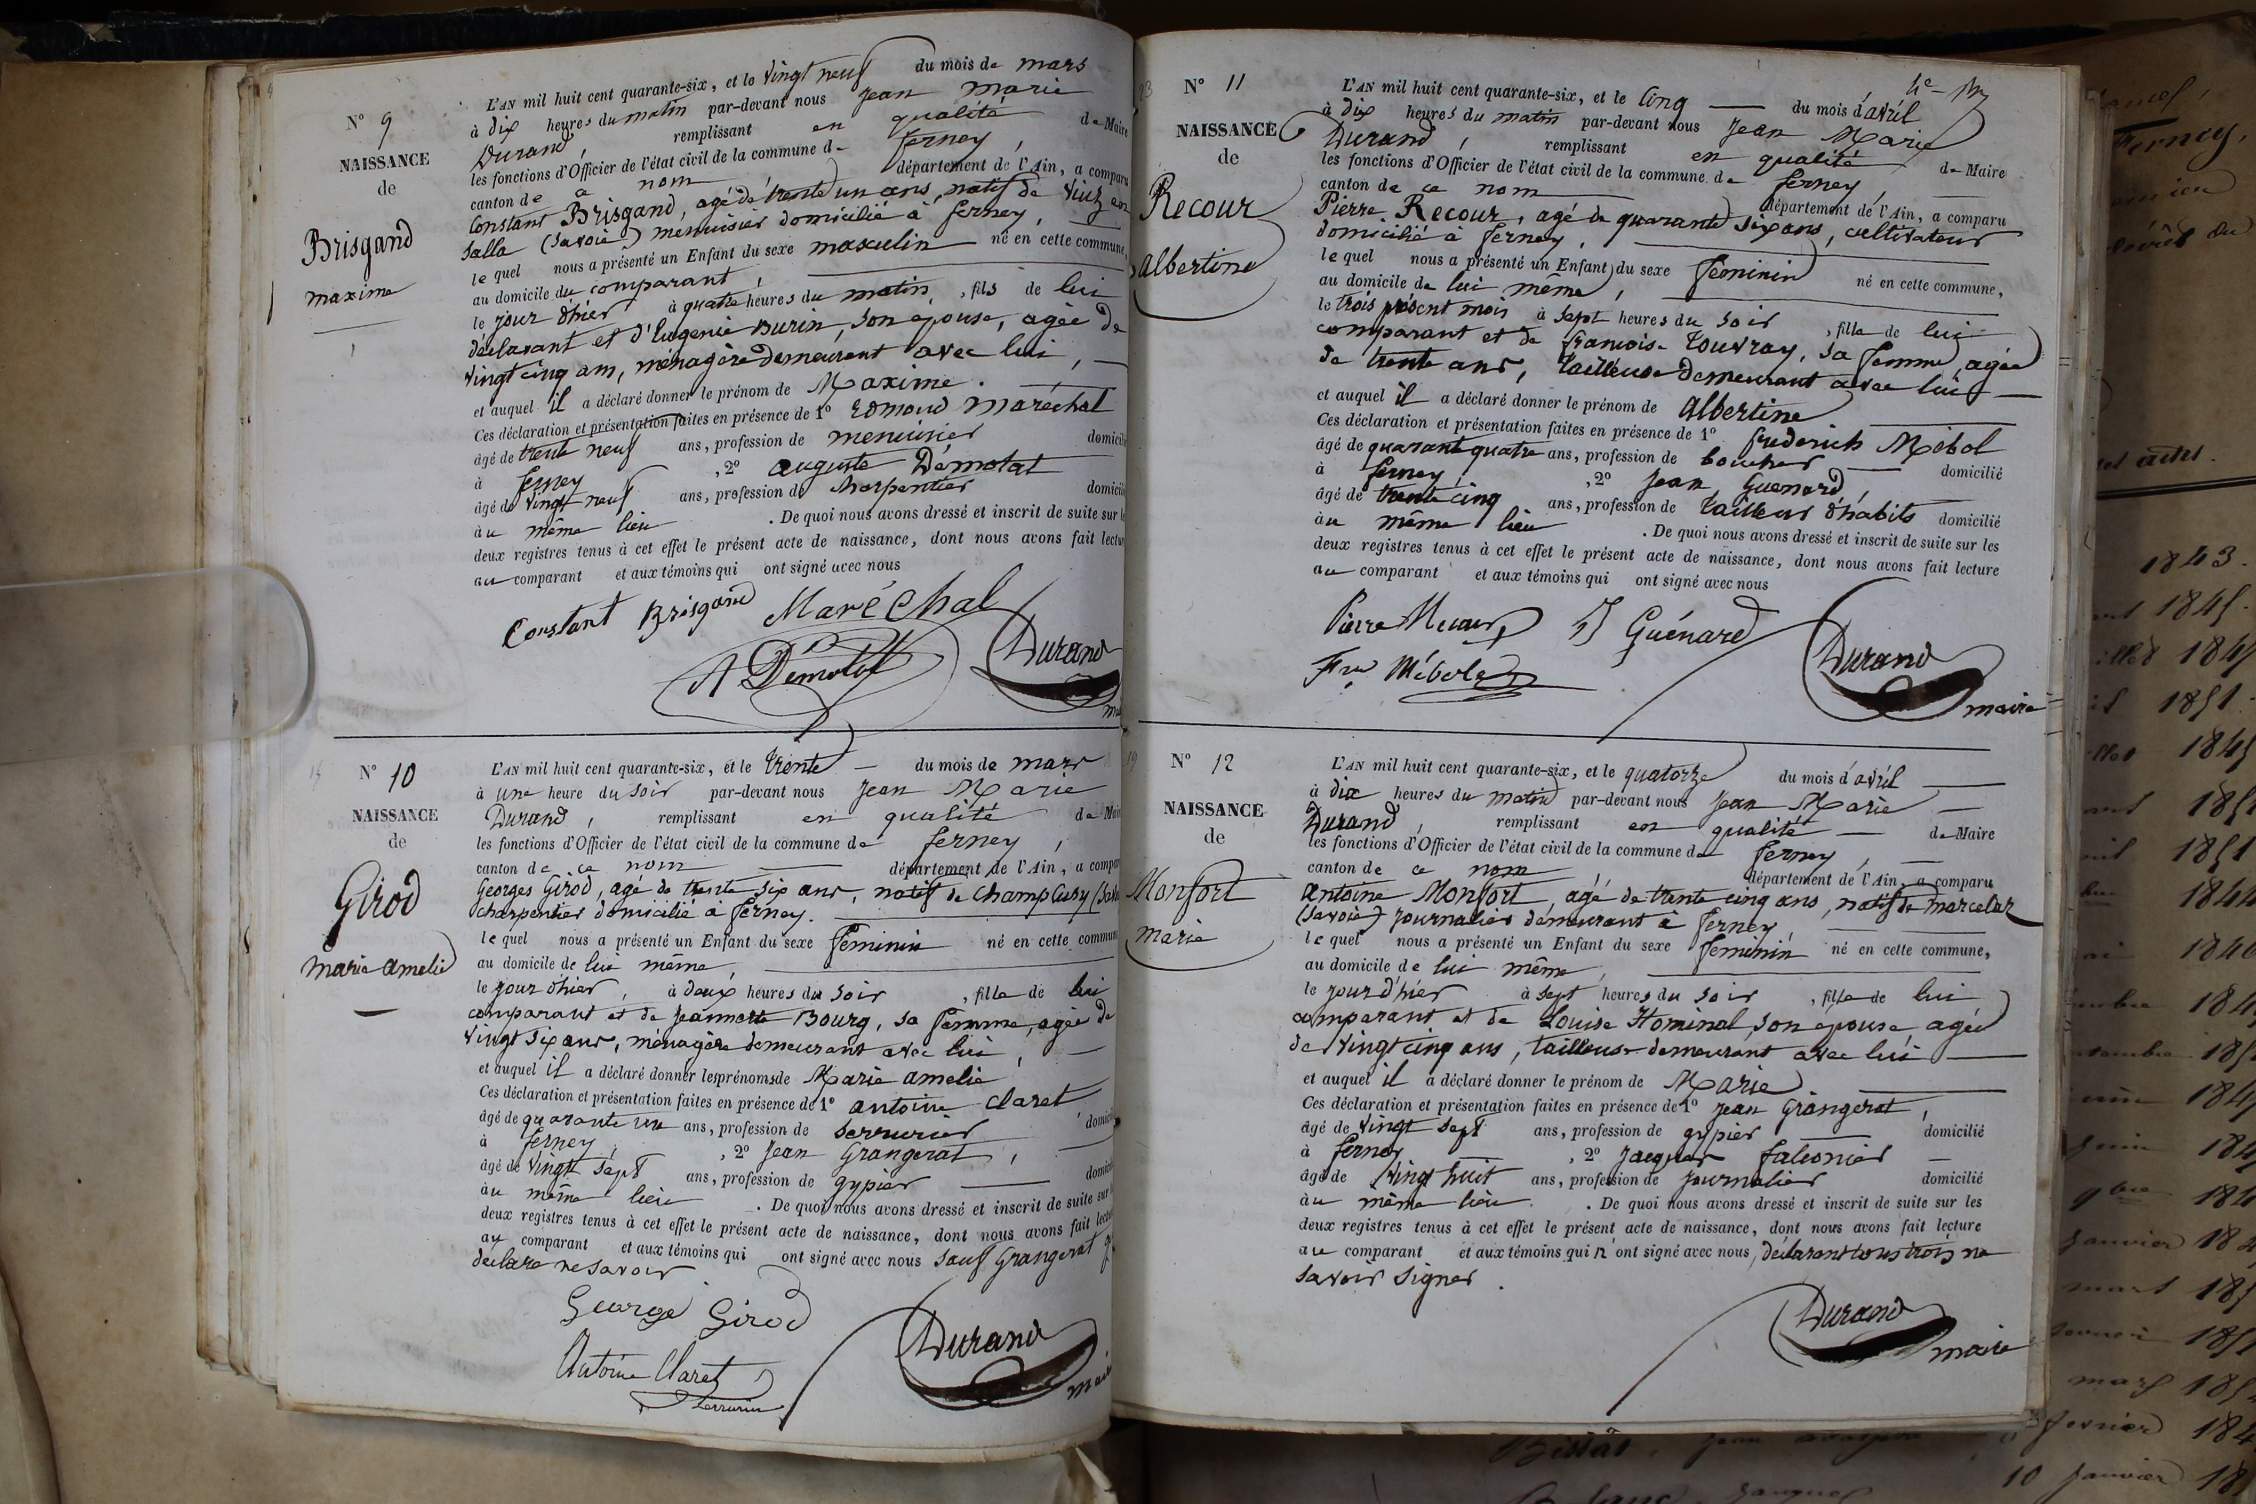 N° 9
NAISSANCE
de
Brisgand
maxime
L'AN mil huit cent quarante-six, et le vingt neuf du mois de mars
à dix heures du matin par-devant nous Jean Marie
Durand, remplissant en qualité de Maire
les fonctions d'Officier de l'état civil de la commune de ferney,
canton de ce nom département de l'Ain, a comparu
Constant Brisgand, agé de trente un ans, natif de
Salla (Savoie) menuisier domicilié à ferney,
le quel nous a présenté un Enfant du sexe masculin né en cette commune,
au domicile du comparant,
le jour d'hier à quatre heures du matin, fils de lui
déclarant et d'Eugenie Burin, son epouse, agée de
vingt cinq ans, ménagère demeurant avec lui,
et auquel il a déclaré donner le prénom de Maxime.
Ces déclaration et présentation faites en présence de 1° Edmond Maréchal
âgé de trente neuf ans, profession de menuisier domicilié
à ferney, 2° auguste Démolat
âgé de vingt neuf ans, profession de charpentier domicilié
au même lieu. De quoi nous avons dressé et inscrit de suite sur les
deux registres tenus à cet effet le présent acte de naissance, dont nous avons fait lecture
au comparant et aux témoins qui ont signé avec nous
Constant Brisgand Maréchal
A Démolat Durand
N° 10
NAISSANCE
de
Girod
marie amelie
L'AN mil huit cent quarante-six, et le trente du mois de mars
à une heure du soir par-devant nous Jean Marie
Durand, remplissant en qualité de Maire
les fonctions d'Officier de l'état civil de la commune de ferney,
canton de ce nom département de l'Ain, a comparu
Georges Girod, agé de trente six ans, natif de
charpentier domicilié à ferney.
le quel nous a présenté un Enfant du sexe féminin né en cette commune
au domicile de lui même,
le jour d'hier, à deux heures du soir, fille de lui
comparant et de jeannette Bourg, sa femme, agée de
vingt six ans, ménagère demeurant avec lui,
et auquel il a déclaré donner les prénoms de Marie amelie
Ces déclaration et présentation faites en présence de 1° antoine Claret
âgé de quarante un ans, profession de serrurier domicilié
à ferney, 2° Jean Grangerat,
âgé de vingt sept ans, profession de gypier domicilié
au même lieu. De quoi nous avons dressé et inscrit de suite sur
deux registres tenus à cet effet le présent acte de naissance, dont nous avons fait lecture
au comparant et aux témoins qui ont signé avec nous sauf Grangerat
déclare ne savoir
George Girod
Antoine Claret Durand
serrurier
N° 11
NAISSANCE
de
Recour
albertine
L'AN mil huit cent quarante-six, et le cinq du mois d'avril
à dix heures du matin par-devant nous Jean Marie
Durand, remplissant en qualité de Maire
les fonctions d'Officier de l'état civil de la commune de ferney,
canton de ce nom département de l'Ain, a comparu
Pierre Recour, agé de quarante six ans, cultivateur
domicilié à ferney,
le quel nous a présenté un Enfant du sexe féminin né en cette commune,
au domicile de lui même,
le trois présent mois à sept heures du soir, fille de lui
comparant et de françoise Touvray, sa femme, agée
de trente ans, tailleuse demeurant avec lui
et auquel il a déclaré donner le prénom de albertine
Ces déclaration et présentation faites en présence de 1° frederich Mébol
âgé de quarante quatre ans, profession de boucher domicilié
à ferney, 2° Jean Guenard,
âgé de trente cinq ans, profession de tailleur d'habits domicilié
au même lieu. De quoi nous avons dressé et inscrit de suite sur les
deux registres tenus à cet effet le présent acte de naissance, dont nous avons fait lecture
au comparant et aux témoins qui ont signé avec nous
Pierre Recour J Guénard
Durand
maire
N° 12
NAISSANCE
de
Monfort
marie
L'AN mil huit cent quarante-six, et le quatorze du mois d'avril
à dix heures du matin par-devant nous Jean Marie
Durand, remplissant en qualité de Maire
les fonctions d'Officier de l'état civil de la commune de ferney,
canton de ce nom département de l'Ain, a comparu
antoine Monfort, agé de trente cinq ans, natif de marcelaz
(Savoie) journalier demeurant à ferney
le quel nous a présenté un Enfant du sexe féminin né en cette commune,
au domicile de lui même,
le jour d'hier à sept heures du soir, fille de lui
comparant et de Louise Hominal, son epouse, agée
de vingt cinq ans, tailleuse demeurant avec lui
et auquel il a déclaré donner le prénom de Marie.
Ces déclaration et présentation faites en présence de 1° Jean Grangerat,
âgé de vingt sept ans, profession de gypier domicilié
à ferney, 2° jacques falconier
âgé de vingt huit ans, profession de journalier domicilié
au même lieu. De quoi nous avons dressé et inscrit de suite sur les
deux registres tenus à cet effet le présent acte de naissance, dont nous avons fait lecture
au comparant et aux témoins qui n'ont signé avec nous, déclarant tous trois ne
savoir signer.
Durand
maire